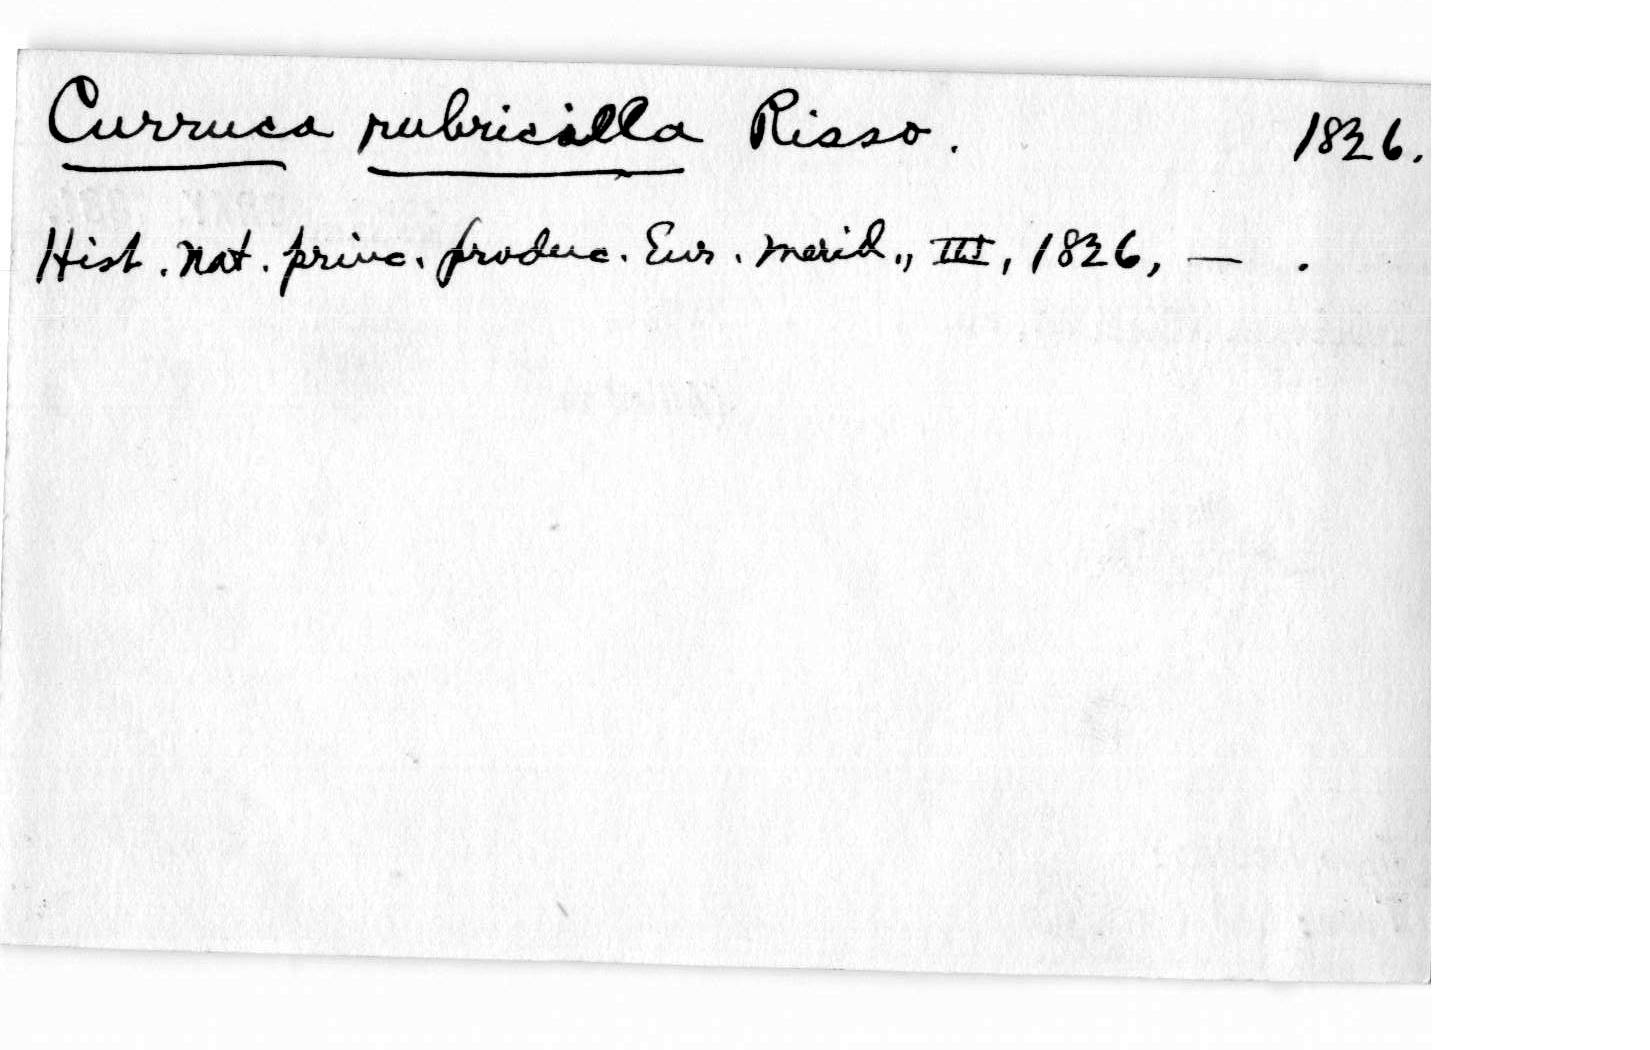 Curruca rubricilla Risso. 1826.
Hist. nat. princ. produc. Eur. merid., III, 1826, — .